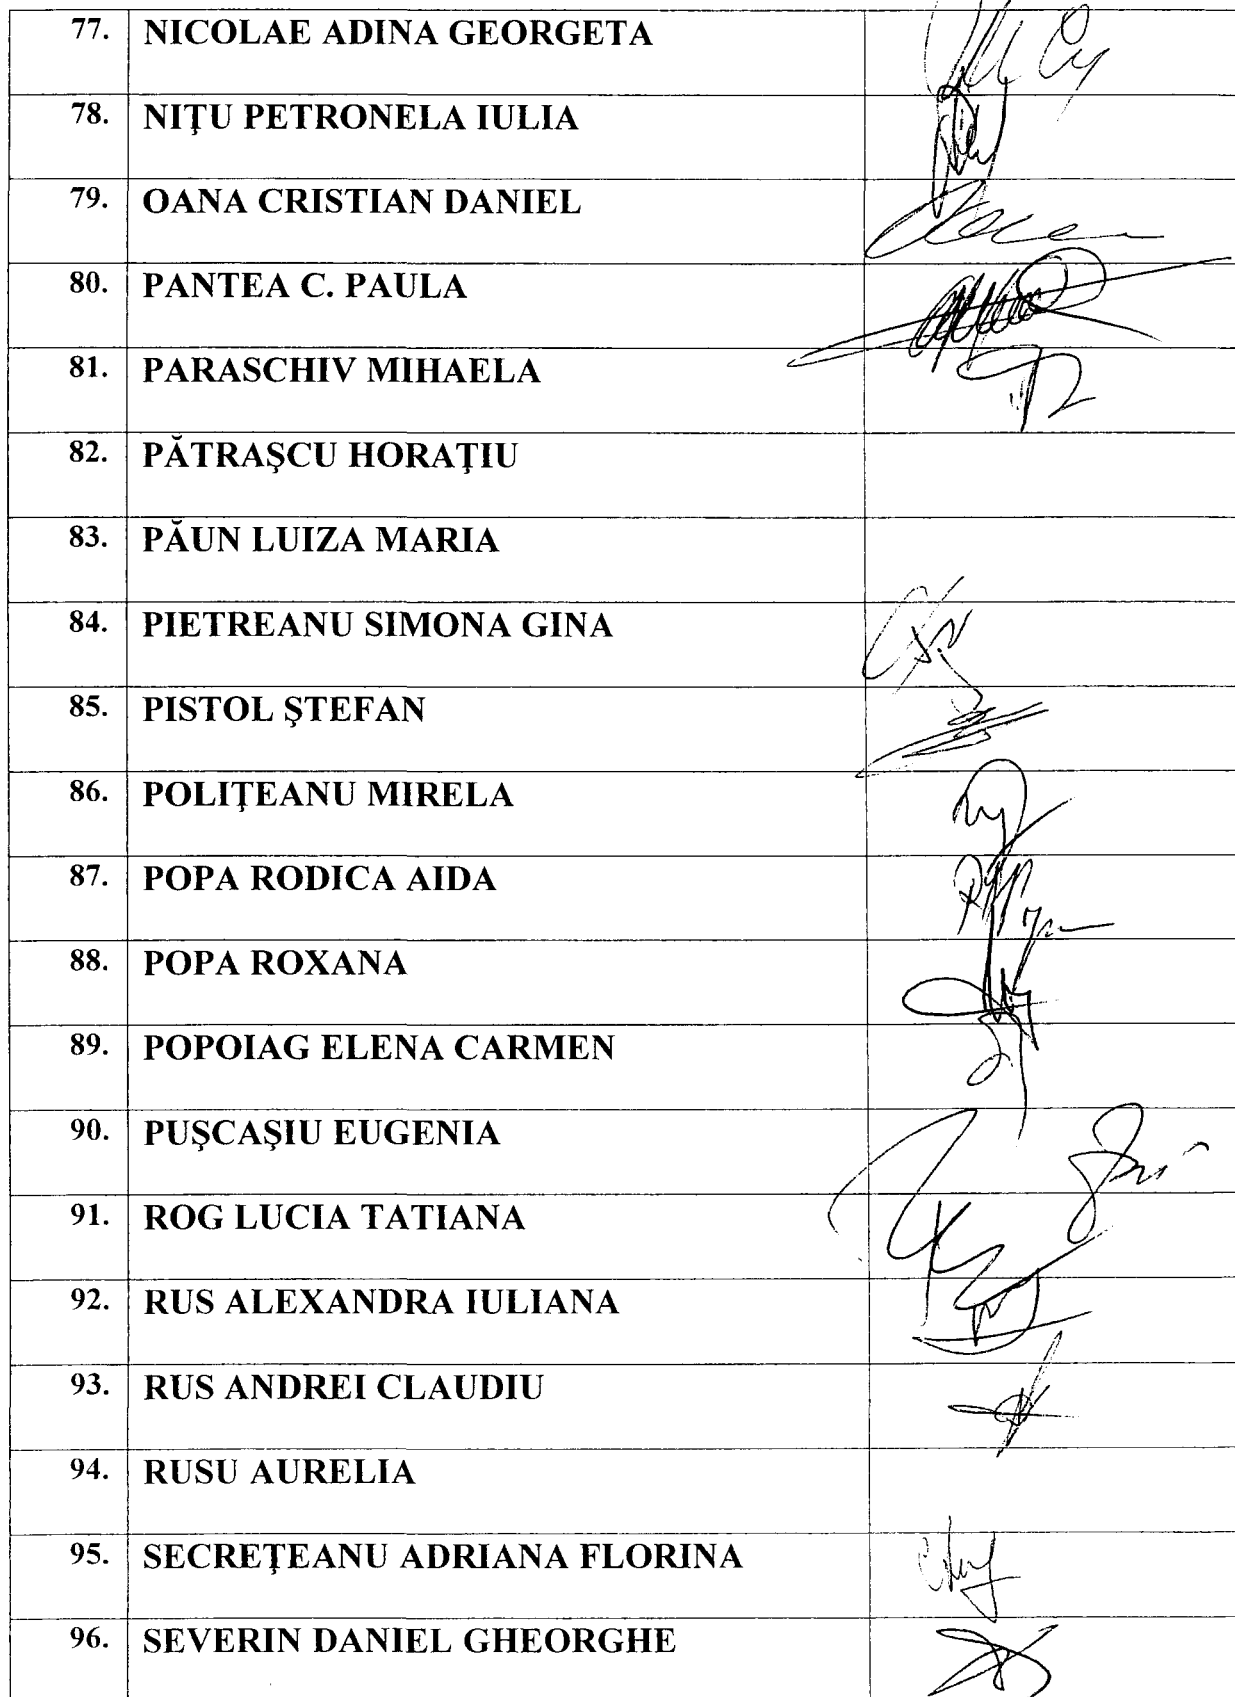 77. NICOLAE ADINA GEORGETA
78. NIŢU PETRONELA IULIA
79. OANA CRISTIAN DANIEL
80. PANTEA C. PAULA
81. PARASCHIV MIHAELA
82. PĂTRAŞCU HORAŢIU
83. PĂUN LUIZA MARIA
84. PIETREANU SIMONA GINA
85. PISTOL ŞTEFAN
86. POLIŢEANU MIRELA
87. POPA RODICA AIDA
88. POPA ROXANA
89. POPOIAG ELENA CARMEN
90. PUŞCAŞIU EUGENIA
91. ROG LUCIA TATIANA
92. RUS ALEXANDRA IULIANA
93. RUS ANDREI CLAUDIU
94. RUSU AURELIA
95. SECREŢEANU ADRIANA FLORINA
96. SEVERIN DANIEL GHEORGHE